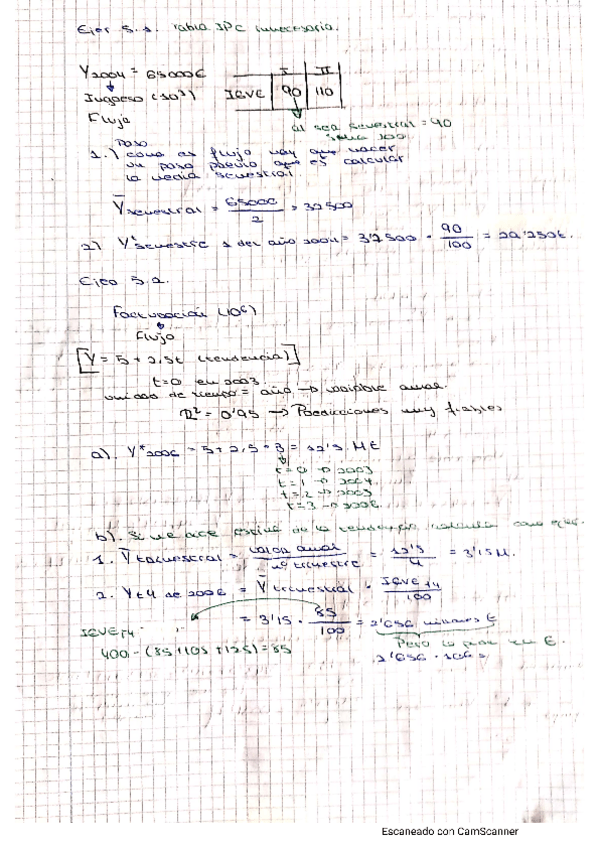 Ejer 5.1. Tabla IPC innecesaria.
Y2004 = 65000€
I II
Ingreso (10³) IGVE 90 110
Flujo
al ser semestral = 90
1.) Paso
como es flujo hay que hacer
un paso previo que es calcular
la media semestral
Ȳsemestral = 65000 / 2 = 32500
2) Y semestre 1 del año 2004 = 32500 · 90/100 = 29'250€.
Ejer 5.2.
Facturación (10⁶)
Flujo
[Y = 5 + 2,5t (tendencia)]
t=0 en 2003
unidad de tiempo = año → variable anual.
R² = 0'95 → Predicciones muy fiables
a). Y*2006 = 5 + 2,5 · 3 = 12'5 M€
t = 0 → 2003
t = 1 → 2004
t = 2 → 2005
t = 3 → 2006
b). Si me dice estima de la tendencia
1. Ȳtrimestral = valor anual / nº trimestre = 12'5 / 4 = 3'15M.
2. Yt4 de 2006 = Ȳtrimestral · IGVEt4 / 100
= 3'15 · 85/100 = 2'656 millones €
IGVEt4
Pero lo pide en €.
400 - (85+105+125) = 85
2'656 · 10⁶
Escaneado con CamScanner